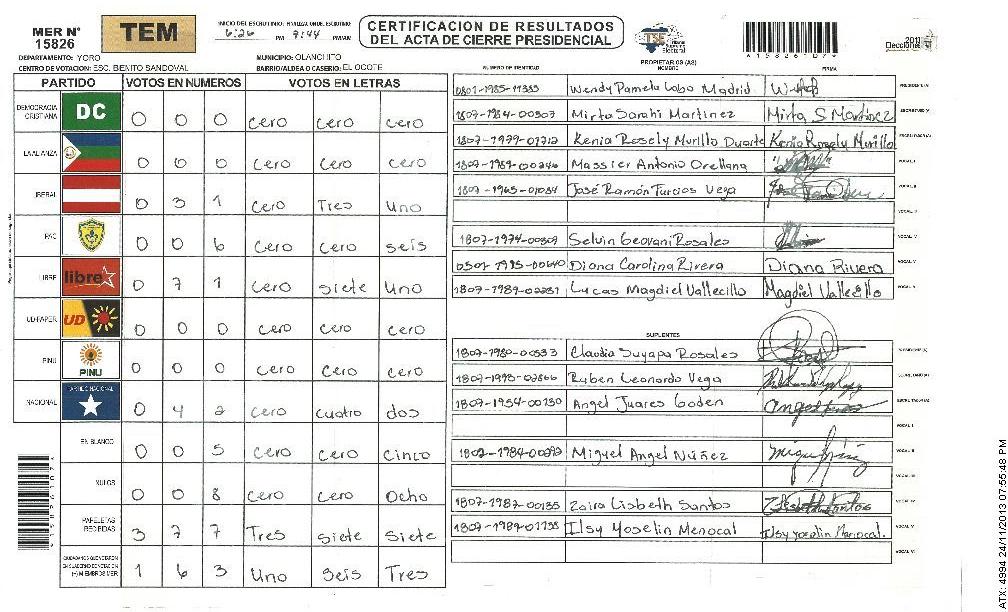 MER N° 15826
TEM
INICIO DEL ESCRUTINIO: FINALIZACION DEL ESCRUTINIO
6:26 PM 7:44 PM
CERTIFICACION DE RESULTADOS
DEL ACTA DE CIERRE PRESIDENCIAL
TSE Tribunal Supremo Electoral
4158261074
Elecciones 2013
DEPARTAMENTO: YORO
MUNICIPIO: OLANCHITO
CENTRO DE VOTACION: ESC. BENITO SANDOVAL
BARRIO/ALDEA O CASERIO: EL OCOTE
PARTIDO VOTOS EN NUMEROS VOTOS EN LETRAS
DEMOCRACIA CRISTIANA DC 0 0 0 cero cero cero
LA ALIANZA 0 0 0 cero cero cero
LIBERAL 0 3 1 cero Tres Uno
PAC 0 0 6 cero cero seis
LIBRE libre 0 7 1 cero siete Uno
UD-FAPER UD 0 0 0 cero cero cero
PINU PINU 0 0 0 cero cero cero
NACIONAL PARTIDO NACIONAL 0 4 2 cero cuatro dos
EN BLANCO 0 0 5 cero cero cinco
NULOS 0 0 8 cero cero Ocho
PAPELETAS RECIBIDAS 3 7 7 Tres siete siete
CIUDADANOS QUE VOTARON EN CUADERNO DE VOTACION (+) MIEMBROS MER 1 6 3 Uno seis Tres
NUMERO DE IDENTIDAD PROPIETARIOS (AS) NOMBRE FIRMA
0801-1985-11385 Wendy Pamela Lobo Madrid PRESIDENTE(A)
1807-1984-00307 Mirta Sarahi Martinez Mirta S Martinez SECRETARIO(A)
1807-1979-01712 Kenia Rosely Murillo Duarte Kenia Rosely Murillo ESCRUTADOR(A)
1807-1989-00246 Massier Antonio Orellana VOCAL I
1807-1965-01084 José Ramón Turcios Vega VOCAL II
VOCAL III
1807-1974-00309 Selvin Geovani Rosales VOCAL IV
0501-1995-00640 Diana Carolina Rivera Diana Rivera VOCAL V
1807-1989-02281 Lucas Magdiel Vallecillo Magdiel Vallecillo VOCAL VI
SUPLENTES
1807-1980-00533 Claudia Suyapa Rosales PRESIDENTE(A)
1807-1993-02866 Ruben Leonardo Vega SECRETARIO(A)
1807-1954-00130 Angel Juares Goden ESCRUTADOR(A)
VOCAL I
1807-1984-00292 Miguel Angel Núñez VOCAL II
VOCAL III
1807-1987-00135 Zoira Lisbeth Santos VOCAL IV
1807-1989-01735 Ilsy Yoselin Menocal Ilsy Yoselin Menocal. VOCAL V
VOCAL VI
4158261074
ATX: 4994 24/11/2013 07:55:48 PM